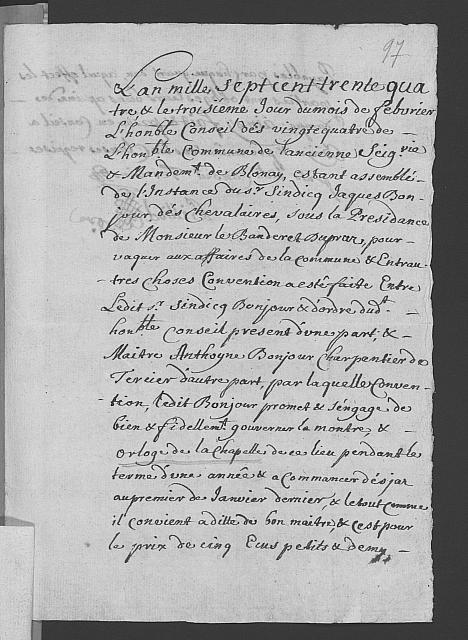 97
L'an mille Sept cent trente qua
tre, & le troisieme Jour du mois de febvrier
L'honble Conseil des vingtequatre de
L'honoble Commune de L'ancienne Seigrie
& Mandemt. de Blonay, estant assemblé
de L'Instance du sr. Sindicq Jaques Bon-
jour, dés Chevalaires, sous la Presidance
de Monsieur le Banderet Dupraz, pour
vaquer aux affaires de la commune & Entrau-
tres choses Convention a esté faite Entre
Ledit sr. Sindicq Bonjour & d'ordre dudt.
honble Conseil present d'une part, &
Maitre Anthoyne Bonjour Charpentier de
Tercier d'autre part, par laquelle Conven-
tion, Ledit Bonjour promet & s'engage de
bien & fidellemt. gouverner la montre, &
orloge de la Chapelle de ce lieu pendant le
terme d'une année & a Commancer desja
au premier de Janvier dernier, & le tout comme
il convient a dille de bon maitre, & c'est pour
le prix de cinq Ecus petits & demy